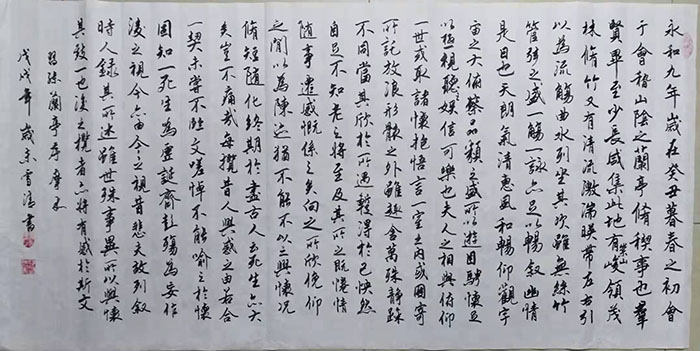 永和九年歲在癸丑暮春之初會
于會稽山陰之蘭亭脩稧事也羣
賢畢至少長咸集此地有崇山峻領茂
林脩竹又有清流激湍暎帶左右引
以為流觴曲水列坐其次雖無絲竹
管弦之盛一觴一詠亦足以暢叙幽情
是日也天朗氣清惠風和暢仰觀宇
宙之大俯察品類之盛所以遊目騁懷足
以極視聽娛信可樂也夫人之相與俯仰
一世或取諸懷抱悟言一室之內或因寄
所託放浪形骸之外雖趣舍萬殊靜躁
不同當其欣於所遇蹔得於己怏然
自足不知老之將至及其所之既惓情
隨事遷感慨係之矣向之所欣俛仰
之閒以為陳迹猶不能不以之興懷況
脩短隨化終期於盡古人云死生亦大
矣豈不痛哉每攬昔人興感之由若合
一契未嘗不臨文嗟悼不能喻之於懷
固知一死生為虛誕齊彭殤為妄作
後之視今亦由今之視昔悲夫故列叙
時人錄其所述雖世殊事異所以興懷
其致一也後之攬者亦將有感於斯文
蘭亭序
戊戌年歲末雪書